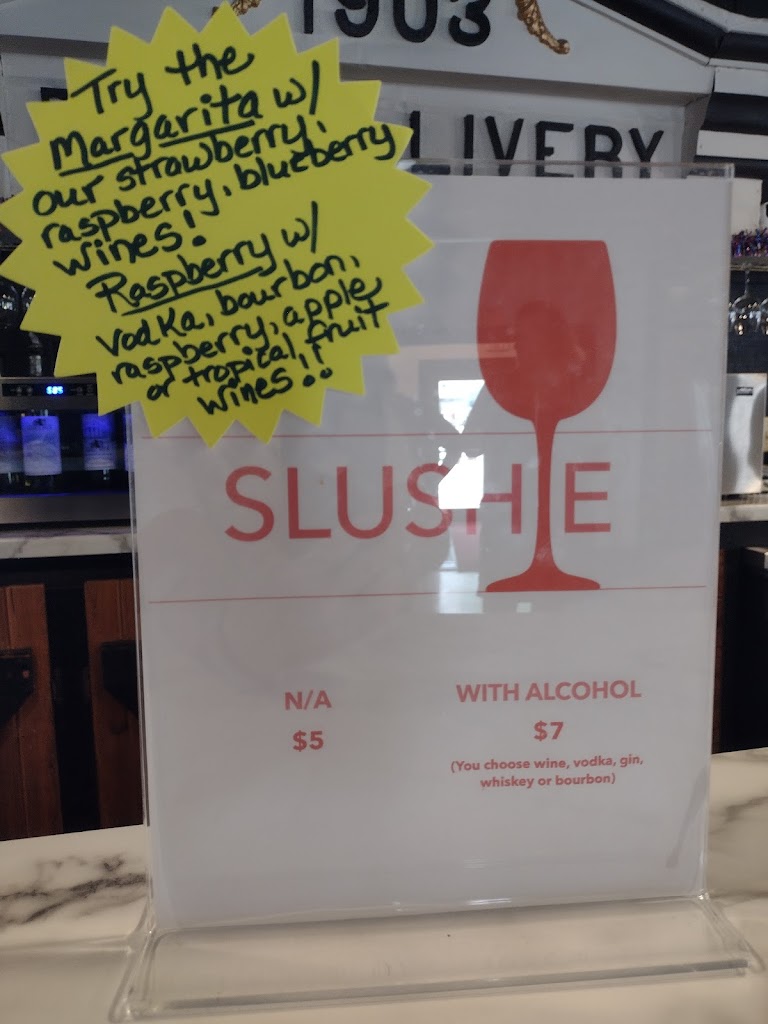 1903
LIVERY
Try the
Margarita w/
our strawberry,
raspberry, blueberry
wines!
Raspberry w/
vodka, bourbon,
raspberry, apple
or tropical fruit
wines!!
SLUSHIE
N/A
$5
WITH ALCOHOL
$7
(You choose wine, vodka, gin,
whiskey or bourbon)